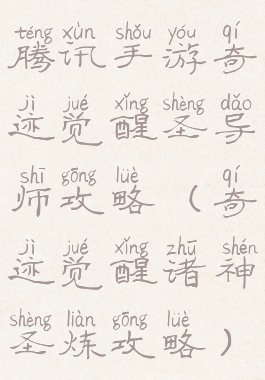 téng xùn shǒu yóu qí
腾讯手游奇
jì jué xǐng shèng dǎo
迹觉醒圣导
shī gōng lüè qí
师攻略（奇
jì jué xǐng zhū shén
迹觉醒诸神
shèng liàn gōng lüè
圣炼攻略）